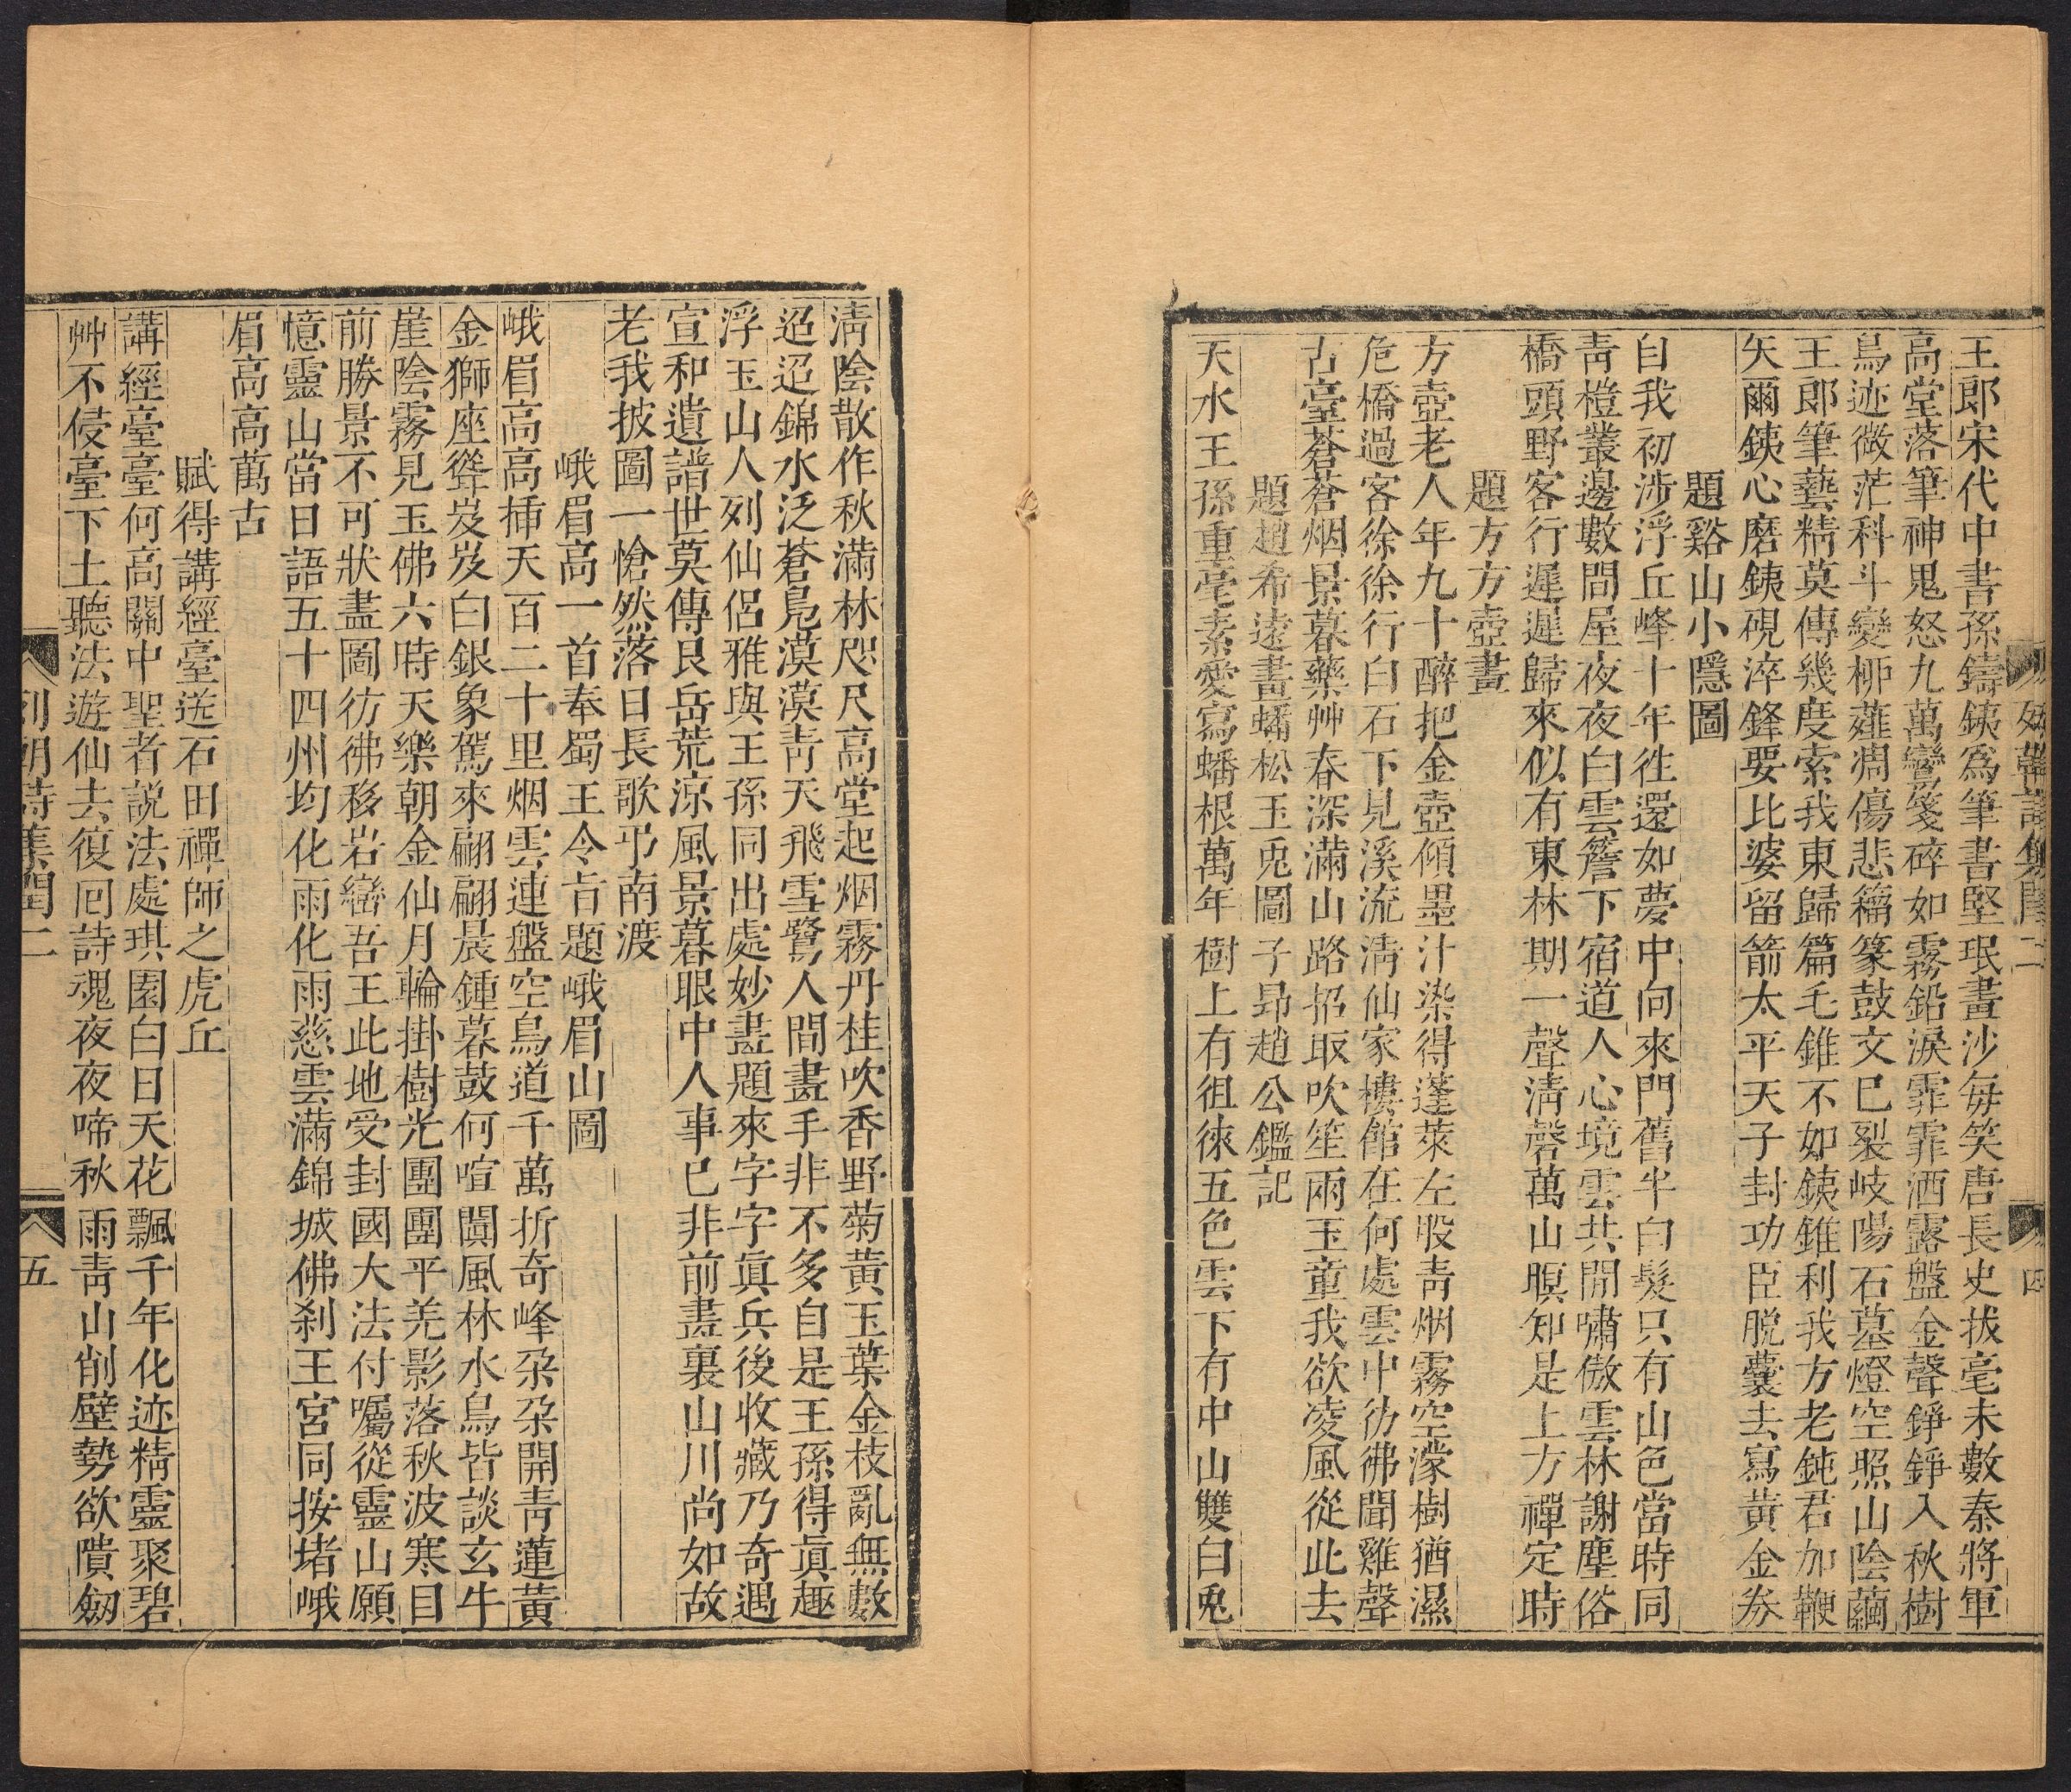 王郎宋代中書孫鑄銕爲筆書堅珉畫沙每笑唐長史拔毫未數秦將軍
高堂落筆神鬼怒九萬鸞箋碎如霧鉛淚霏霏洒露盤金聲錚錚入秋樹
鳥迹微茫科斗變柳薤凋傷悲籀篆鼓文巳裂岐陽石墓燈空照山陰繭
王郎筆藝精莫傳幾度索我東歸篇毛錐不如銕錐利我方老鈍君加鞭
矢爾銕心磨銕硯淬鋒要比婆留箭太平天子封功臣脫囊去寫黃金券
題谿山小隱圖
自我初涉浮丘峰十年徃還如夢中向來門舊半白髮只有山色當時同
靑橙叢邊數間屋夜夜白雲簷下宿道人心境雲共閒嘯傲雲林謝塵俗
橋頭野客行遲遲歸來似有東林期一聲淸磬萬山暝知是上方禪定時
題方方壺畫
方壺老人年九十醉把金壺傾墨汁染得蓬萊左股靑烟霧空濛樹猶濕
危橋過客徐徐行白石下見溪流淸仙家樓館在何處雲中彷彿聞雞聲
古臺蒼蒼烟景暮藥艸春深滿山路招取吹笙兩玉童我欲凌風從此去
題趙希遠畫蟠松玉兎圖 子昂趙公鑑記
天水王孫重毫素愛寫蟠根萬年樹上有徂徠五色雲下有中山雙白兎
列朝詩集閏二 四
淸陰散作秋滿林咫尺高堂起烟霧丹桂吹香野菊黃玉葉金枝亂無數
迢迢錦水泛蒼鳧漠漠靑天飛雪鷺人間畫手非不多自是王孫得眞趣
浮玉山人列仙侶雅與王孫同出處妙畫題來字字眞兵後收藏乃奇遇
宣和遺譜世莫傳艮岳荒涼風景暮眼中人事巳非前畫裏山川尚如故
老我披圖一愴然落日長歌弔南渡
峨眉高一首奉蜀王令旨題峨眉山圖
峨眉高高揷天百二十里烟雲連盤空鳥道千萬折奇峰朶朶開靑蓮黃
金獅座聳岌岌白銀象駕來翩翩晨鍾暮鼓何喧闐風林水鳥皆談玄牛
崖陰霧見玉佛六時天樂朝金仙月輪掛樹光團團平羌影落秋波寒目
前勝景不可狀畫圖彷彿移岩巒吾王此地受封國大法付囑從靈山願
憶靈山當日語五十四州均化雨化雨慈雲滿錦城佛刹王宮同按堵峨
眉高高萬古
賦得講經臺送石田禪師之虎丘
講經臺臺何高關中聖者說法處琪園白日天花飄千年化迹精靈聚碧
艸不侵臺下土聽法遊仙去復囘詩魂夜夜啼秋雨靑山削壁勢欲隤劔
列朝詩集閏二 五